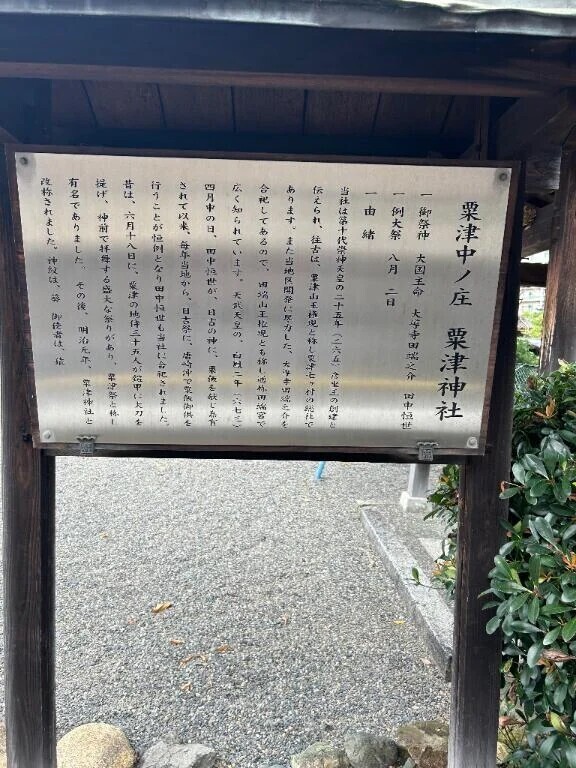 粟津中ノ庄 粟津神社
一 御祭神 大国主命 大導寺田端之介 田中恒世
一 例大祭 八月 二日
一 由緒
当社は第十代崇神天皇の二十五年(二六五)の創建と
伝えられ、往古は、粟津山王権現と称し粟津七ヶ村の総社で
あります。また当地区開祭に尽力した、大導寺田端之介を
合祀してあるので、田端山王権現とも称し通称田端宮で
広く知られています。天武天皇の、白鳳二年(六七三)
四月中の日、田中恒世が、日吉の神に、粟飯を献じ
されて以来、毎年当地から、日吉祭に、唐崎沖で粟飯御供を
行うことが恒例となり田中恒世も当社に合祀されました。
昔は、六月十八日に、粟津の地侍三十五人が鎧甲に太刀を
提げ、神前で拝母する盛大な祭りがあり、粟津祭と称し
有名でありました。その後、明治元年、粟津神社と
改称されました。神紋は、葵 御使者は、猿